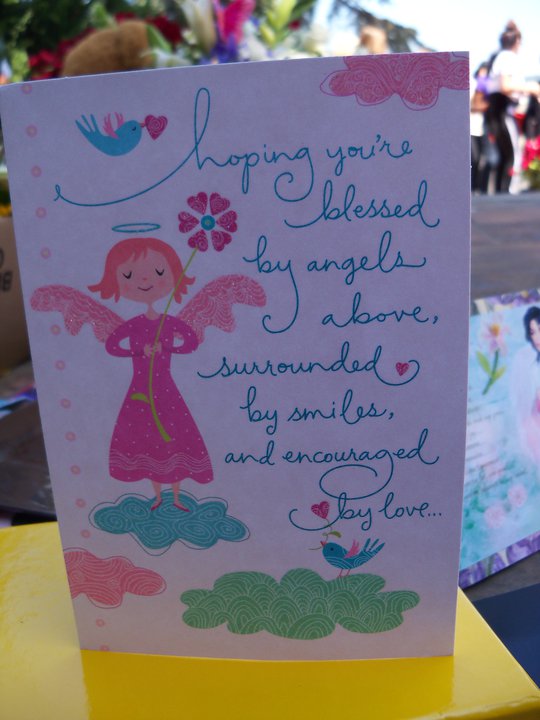 hoping you're
blessed
by angels
above,
surrounded
by smiles,
and encouraged
by love...